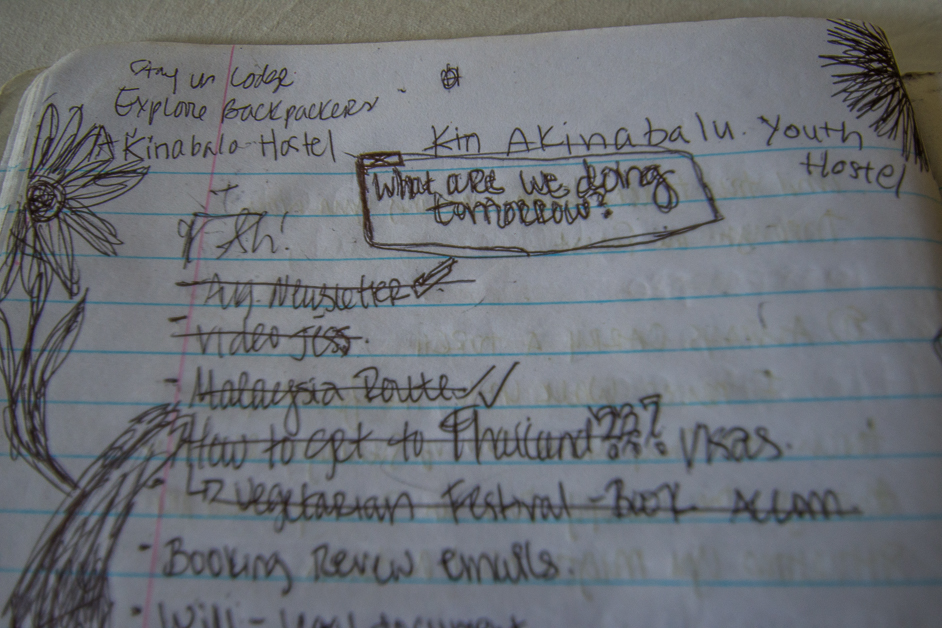 Stay in Lodge
Explore Backpackers
Kinabalu Hostel
Kin AKinabalu Youth
Hostel
What are we doing
tomorrow?
Ah!
- Aug Newsletter
- Video
- Malaysia Route
How to get to Thailand??? Visas.
Vegetarian Festival - Book Accom
- Booking Review emails.
- Will - legal document